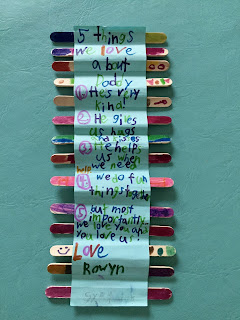 5 things
we love
about
Daddy
1. He's very
kind!
2. He gives
us hugs
and kisses
3. He helps
us when
we need
help
4. we do fun
things together
5. but most
importantly
we love you and
you love us!
Love
Rowyn